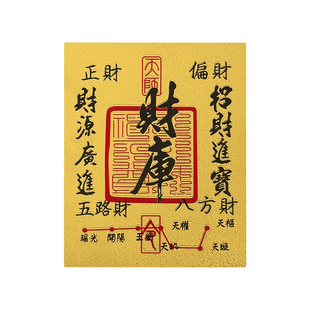 正財
天師
偏財
財源廣進
財庫
招財進寶
五路財
八方財
瑶光 開陽 玉衡 天權 天樞
天璇